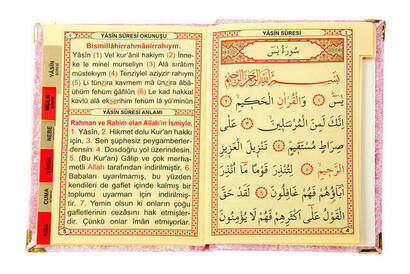 YÂSİN SÛRESİ OKUNUŞU
Bismillâhirrahmânirrahıym.
Yâsîn (1) Vel kur'ânil hakiym (2) İnne-
ke le minel murseliyn (3) Alâ sırâtım
müstekıym (4) Tenziylel aziyzir rahıym
(5) Li tünzira kavmem mâ ünzira âbâ-
ühüm fehüm ğâfilûn (6) Le kad hakkal
kavlü alâ ekserihim fehüm lâ yü'minûn
YÂSİN SÛRESİ ANLAMI
Rahman ve Rahim olan Allah'ın İsmiyle.
1. Yâsin, 2. Hikmet dolu Kur'an hakkı
için, 3. Sen şüphesiz peygamberler-
densin. 4. Dosdoğru yol üzerindesin.
5. (Bu Kur'an) Gâlip ve çok merha-
metli Allah tarafından indirilmiştir. 6.
Babaları uyarılmamış, bu yüzden
kendileri de gaflet içinde kalmış bir
toplumu uyarman için indirilmiş-
tir. 7. Yemin olsun ki onların çoğu
gafletlerinin cezasını hak etmişler-
dir. Çünkü onlar îman etmiyorlar.
YÂSİN
MÜLK
NEBE
VÂKIA
CUMA
DUA
YÂSİN SÛRESİ
سُورَةُ يٰسٓ
بِسْمِ اللّٰهِ الرَّحْمٰنِ الرَّحِيمِ
يٰسٓ ﴿١﴾ وَالْقُرْاٰنِ الْحَكِيمِ ﴿٢﴾
اِنَّكَ لَمِنَ الْمُرْسَلِينَ ﴿٣﴾ عَلٰى
صِرَاطٍ مُسْتَقِيمٍ ﴿٤﴾ تَنْزِيلَ الْعَزِيزِ
الرَّحِيمِ ﴿٥﴾ لِتُنْذِرَ قَوْمًا مَٓا اُنْذِرَ
اٰبَٓاؤُ۬هُمْ فَهُمْ غَافِلُونَ ﴿٦﴾ لَقَدْ حَقَّ
الْقَوْلُ عَلٰٓى اَكْثَرِهِمْ فَهُمْ لَا يُؤْمِنُونَ